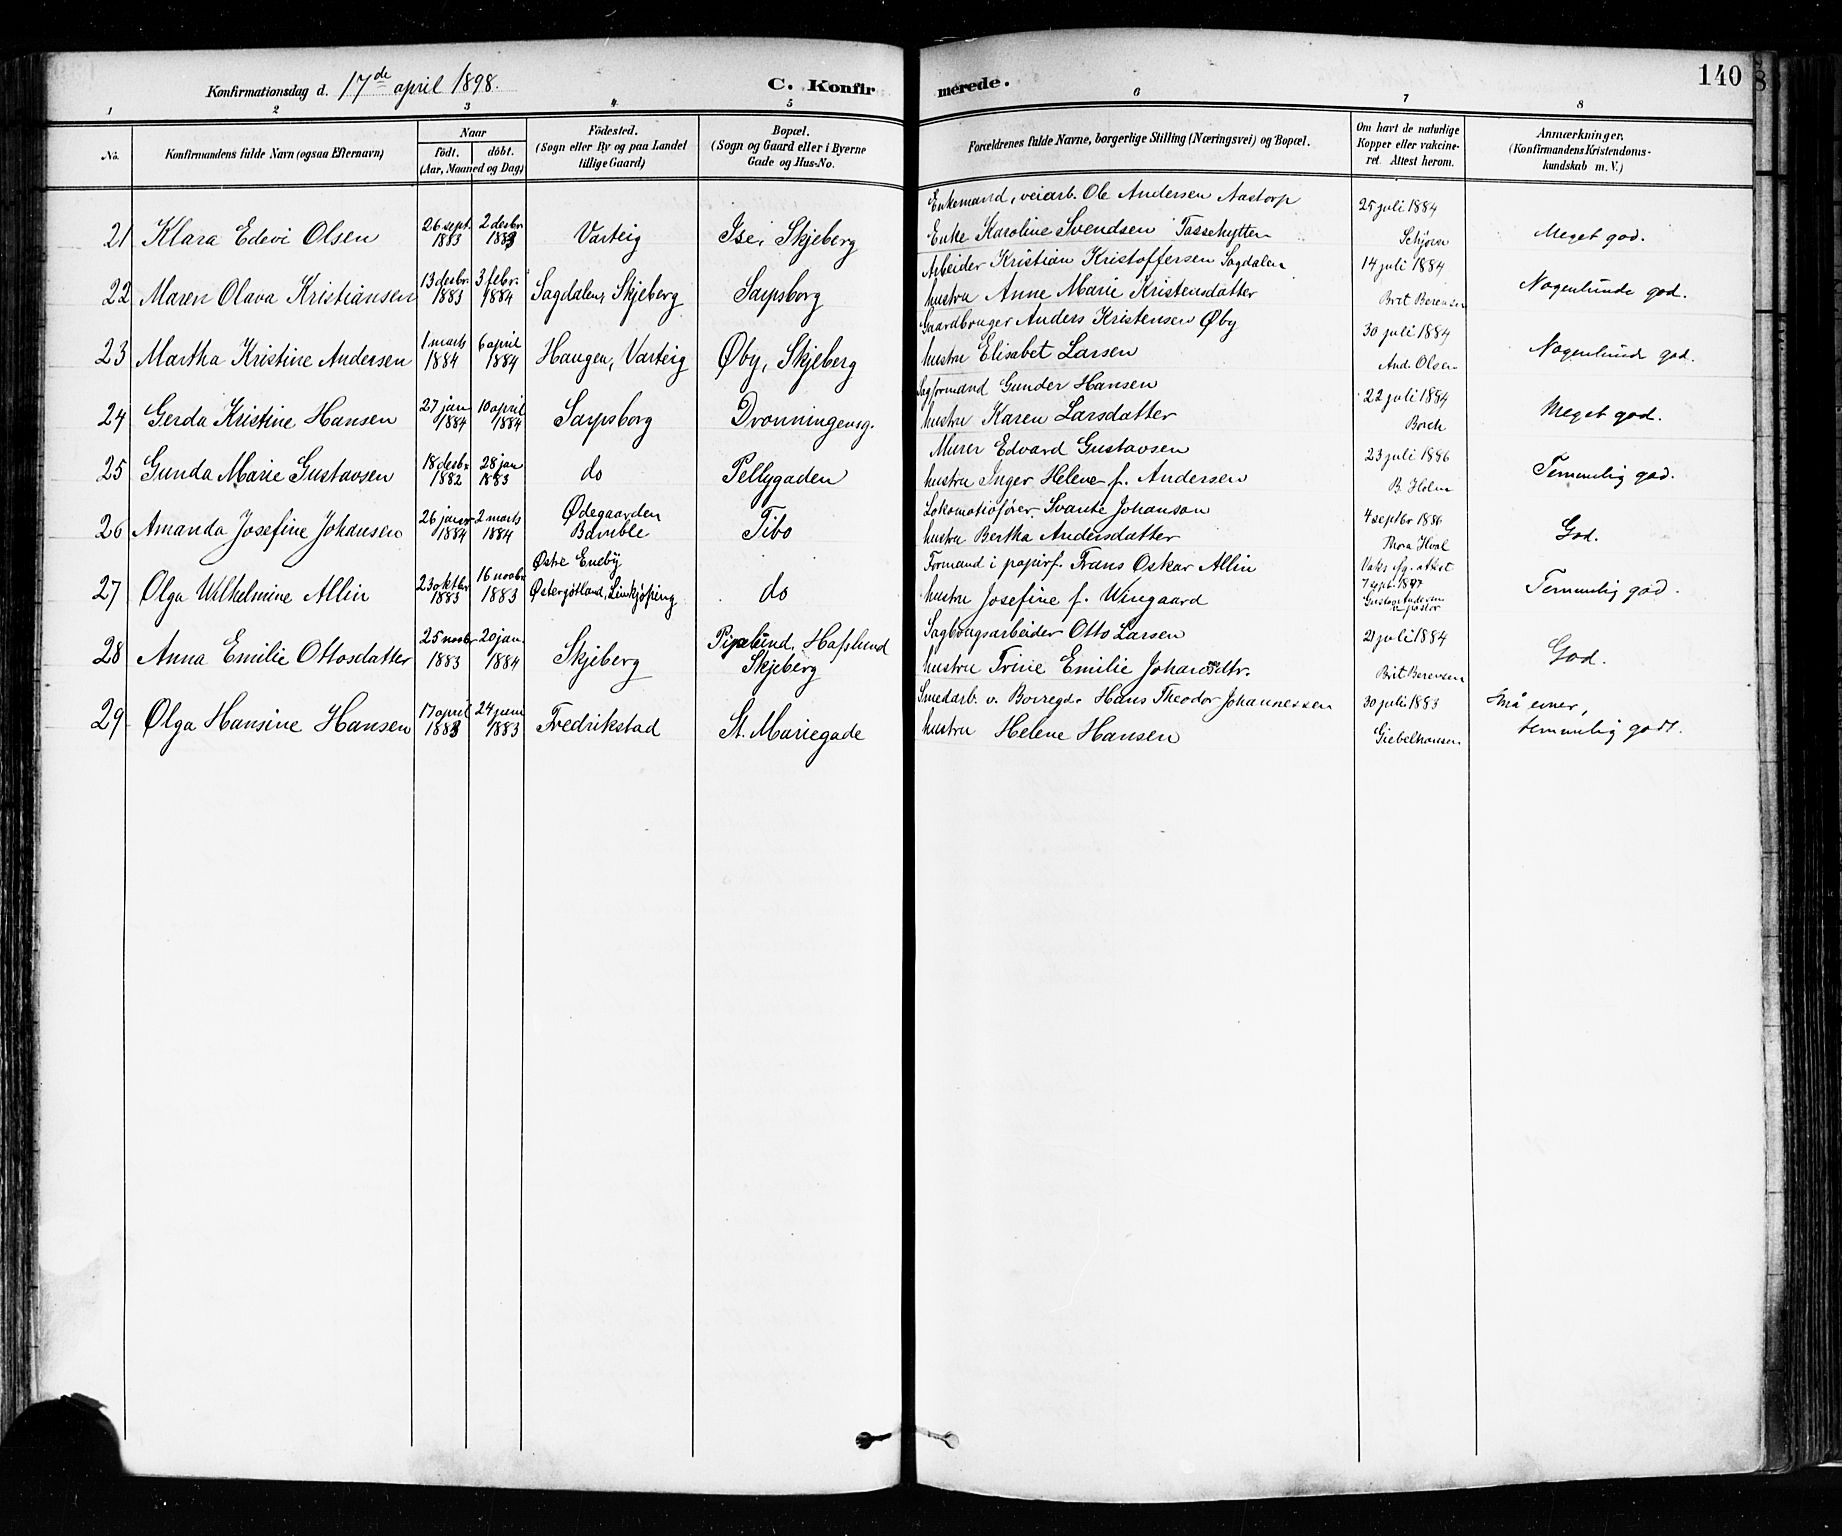 Konfirmationsdag d. 17de april 1898.
C. Konfirmerede.
140
1 2 3 4 5 6 7 8
No.
Konfirmandens fulde Navn (ogsaa Efternavn)
Naar
födt. döbt.
(Aar, Maaned og Dag)
Födested.
(Sogn eller By og paa Landet
tillige Gaard)
Bopæl.
(Sogn og Gaard eller i Byerne
Gade og Hus-No.
Forældrenes fulde Navne, borgerlige Stilling (Næringsvei) og Bopæl.
Om havt de naturlige
Kopper eller vakcine-
ret. Attest herom.
Anmærkninger.
(Konfirmandens Kristendoms-
kundskab m. V.)
21 Klara Edevi Olsen
26 sept. 1883
2 desbr 1883
Varteig
Ise, Skjeberg
Enkemand, veiarb. Ole Andersen Nastorp
Enke Karoline Svendsen Tassehytten
25 juli 1884
Schjørn
Meget god.
22 Maren Olava Kristiansen
13 desbr. 1883
3 febr. 1884
Sagdalen, Skjeberg
Sarpsborg
Arbeider Kristian Kristoffersen Sagdalen
hustru Anne Marie Kristensdatter
14 juli 1884
Brit Berensen
Nogenlunde god.
23 Martha Kristine Andersen
1 marts 1884
6 april 1884
Haugen, Varteig
Øby, Skjeberg
Gaardbruger Anders Kristensen Øby
hustru Elisabet Larsen
30 juli 1884
And. Olsen
Nogenlunde god.
24 Gerda Kristine Hansen
27 jan 1884
10 april 1884
Sarpsborg
Dronningensg.
Sagformand Gunder Hansen
hustru Karen Larsdatter
22 juli 1884
Borch
Meget god.
25 Gunda Marie Gustavsen
18 desbr 1882
28 jan 1883
do
Pellygaden
Murer Edvard Gustavsen
hustru Inger Helene f. Andersen
23 juli 1886
B. Holm
Temmelig god.
26 Amanda Josefine Johansen
26 januar 1884
2 marts 1884
Ødegaarden
Bamble
Tibo
Lokomotivfører Svante Johanson
hustru Bertha Andersdatter
4 septbr 1886
Thora Hval
God.
27 Olga Wilhelmine Allin
23 oktbr 1883
16 novbr 1883
Østre Eneby
Østerjøtland, Linkjøping
do
Formand i papirf. Frans Oskar Allin
hustru Josefine f. Wingaard
Vaks. flg. attest
7 sept. 1897
Gustav Andersen
pastor
Temmelig god.
28 Anna Emilie Ottosdatter
25 novbr 1883
20 jan. 1884
Skjeberg
Pipelund, Hafslund
Skjeberg
Sagbrugsarbeider Otto Larsen
hustru Trine Emilie Johansdtr.
21 juli 1884
Brit Berensen
God.
29 Olga Hansine Hansen
17 april 1883
24 juni 1883
Fredrikstad
St. Mariegade
Smedarb. v. Borregd. Hans Theodor Johannessen
hustru Helene Hansen
30 juli 1883
Giebelhausen
Små evner,
temmelig godt.